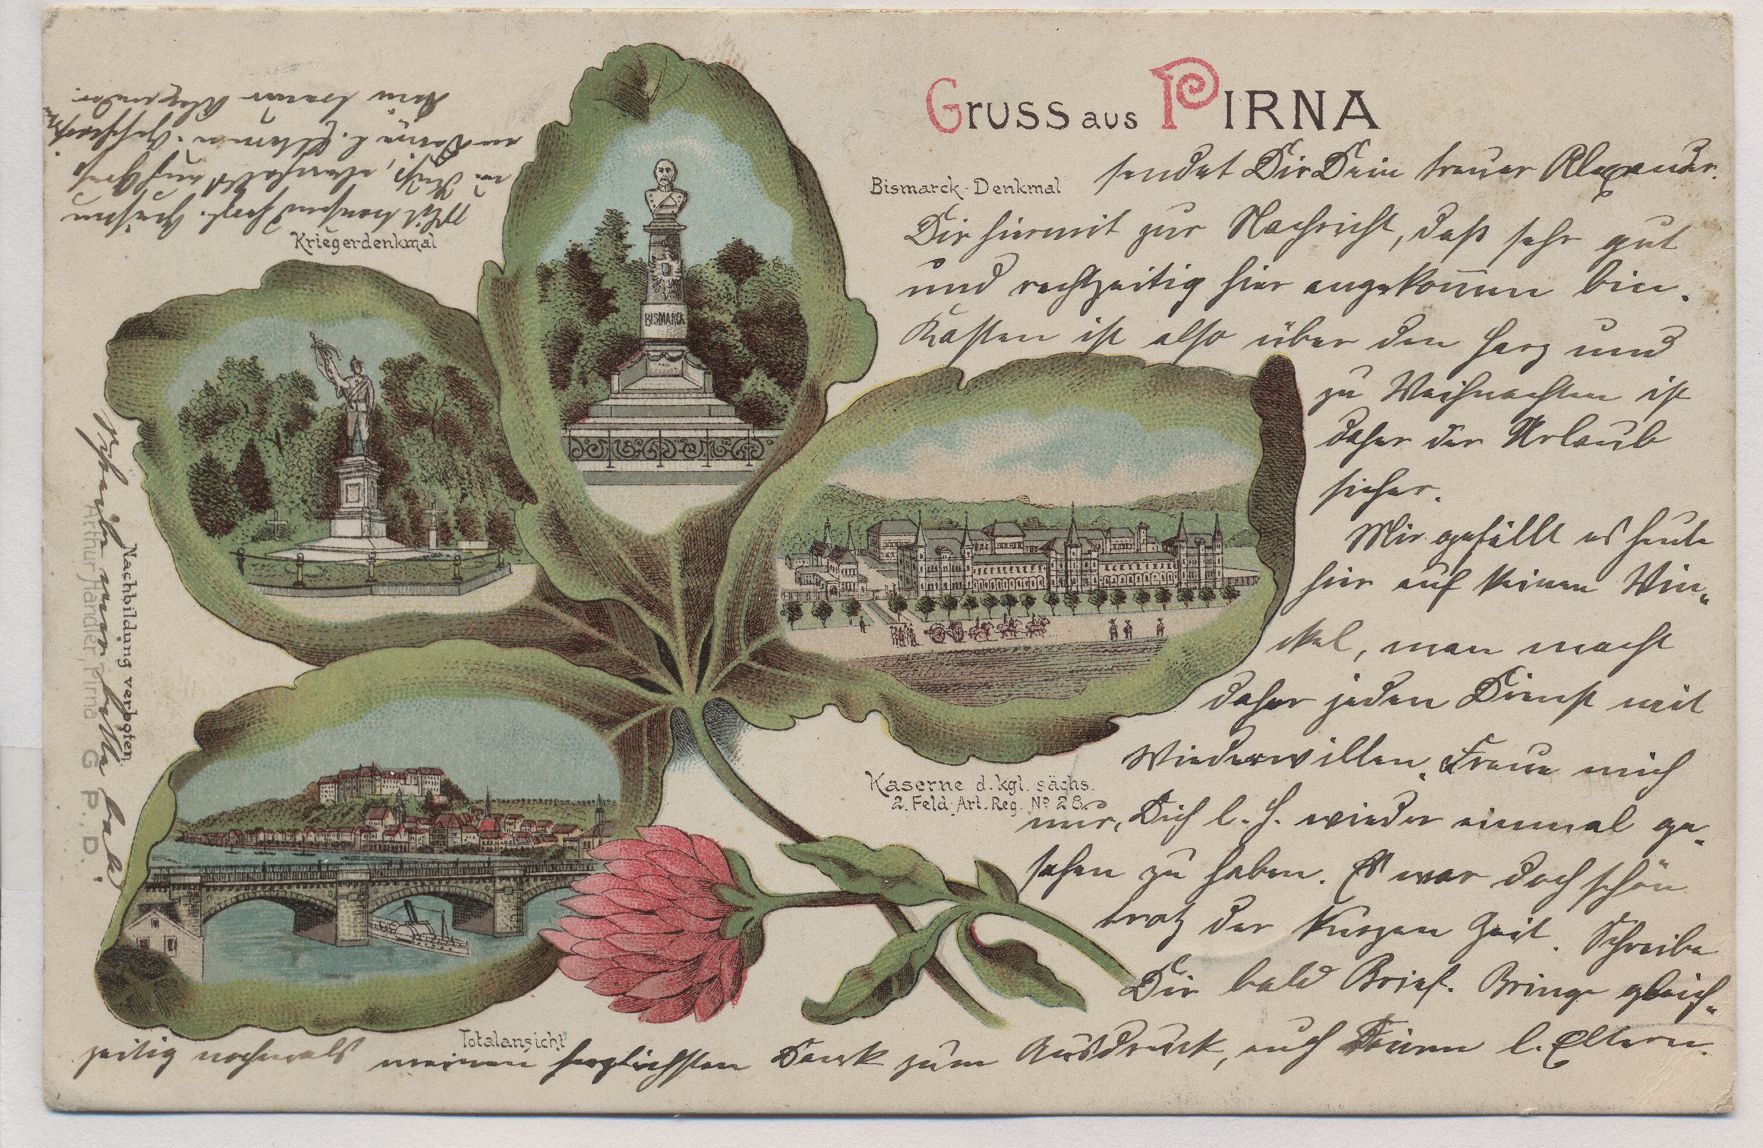 Gruss aus PIRNA
sendet Dir Dein treuer Alexander.
Bismarck-Denkmal
Dir hiermit zur Nachricht, daß sehr gut
und rechtzeitig hier angekommen bin.
Kasten ist also über den Harz und
zu Weihnachten ist
daher der Urlaub
sicher.
Mir gefällt es heute
hier auf keinen Win-
kel, man macht
daher jeden Dienst mit
Wiederwillen. Freue mich
nur, Dich l. H. wieder einmal ge-
sehen zu haben. Es war doch schön
trotz der kurzen Zeit. Schreibe
Dir bald Brief. Bringe gleich-
zeitig nochmals meinen herzlichsten Dank zum Ausdruck, auch Deinen l. Eltern.
Kriegerdenkmal
BISMARCK
Kaserne d. kgl. sächs.
2. Feld-Art. Reg. No 28.
Totalansicht
Schreibe nur bitte bald
Nachbildung verboten.
Arthur Händler, Pirna G. P., D.
Mit tausend herzl. Grüßen
u. Kuß, ebenfalls auch Gruß
an Deine l. Eltern
Dein treuer Alexander.